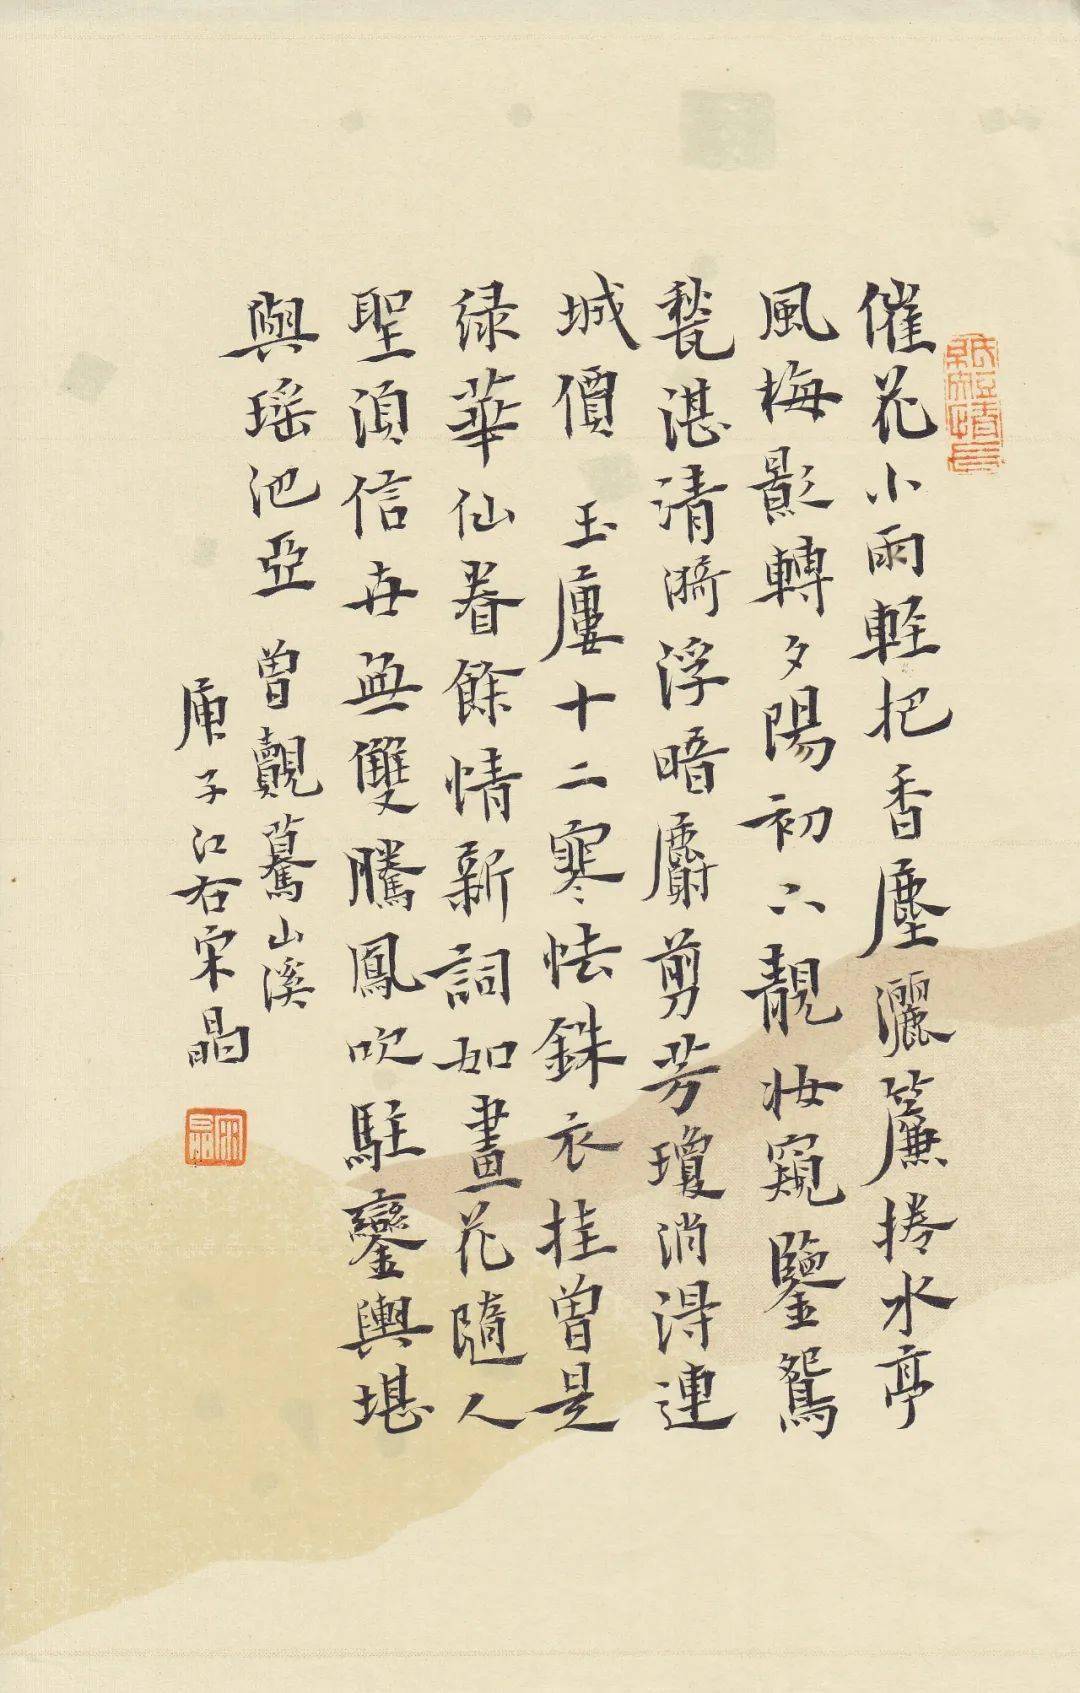 催花小雨輕把香塵灑簾捲水亭
風梅影轉夕陽初下靚妝窺鑒鴛
甃湛清漪浮暗麝剪芳瓊消得連
城價 玉廔十二寒怯銖衣挂曾是
緑華仙眷餘情新詞如畫花隨人
聖須信世無雙騰鳳吹駐鑾輿堪
與瑶池亞 曾覿驀山溪
庚子江右宋晶
紙短情長
宋晶